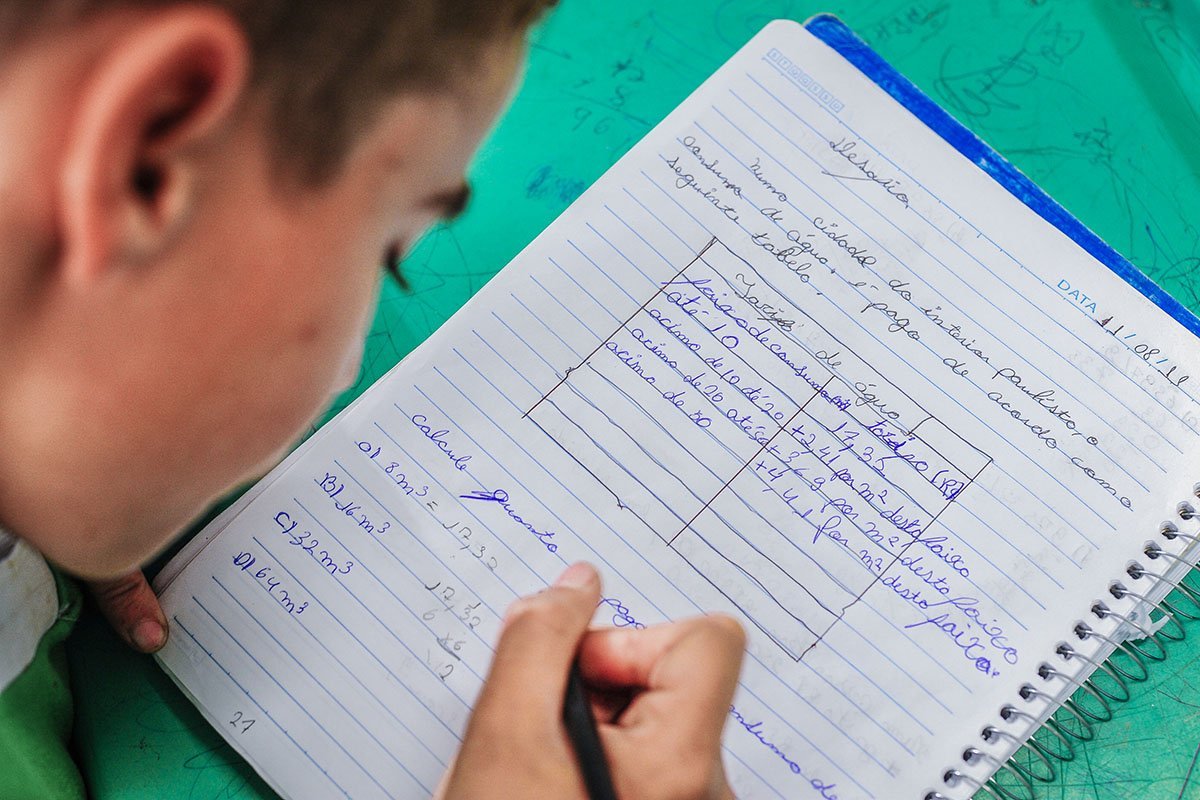 DATA 11/08/11
Desafio
Numa cidade do interior paulista, o
consumo de água, é pago de acordo com a
seguinte tabela.
Tarifa de água
faixa de consumo tarifa (R$)
até 10 17,35
acima de 10 até 20 +2,41 por m² desta faixa
acima de 20 até 50 +3,69 por m² desta faixa
acima de 50 +4,41 por m² desta faixa.
Calcule Quanto paga consumo de
a) 8 m³ = 17,32
B) 16 m³
C) 32 m³
D) 64 m³
17,32
6
12
27